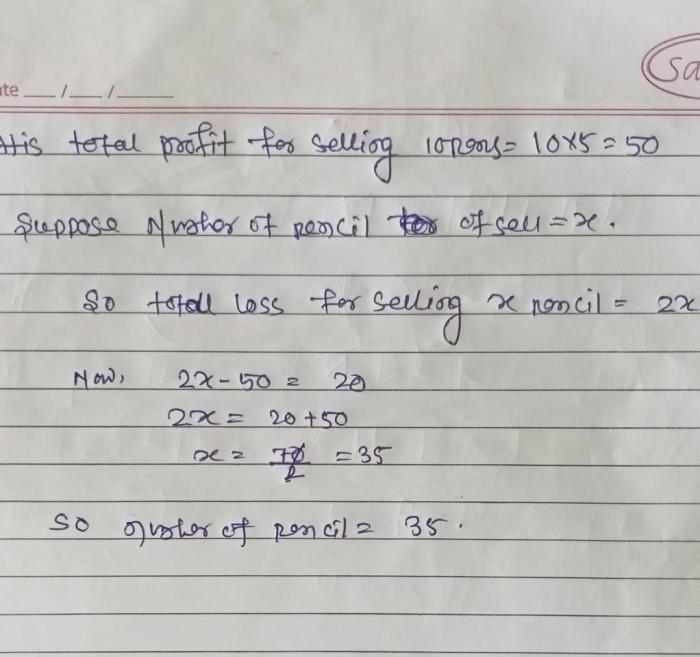 Sa
ate __/__/____
His total profit for selling 10 pens = 10×5 = 50
Suppose Number of pencil of sell = x.
So totall loss for selling x pencil = 2x
Now, 2x - 50 = 20
2x = 20 + 50
x = 70/2 = 35
So number of pencil = 35.